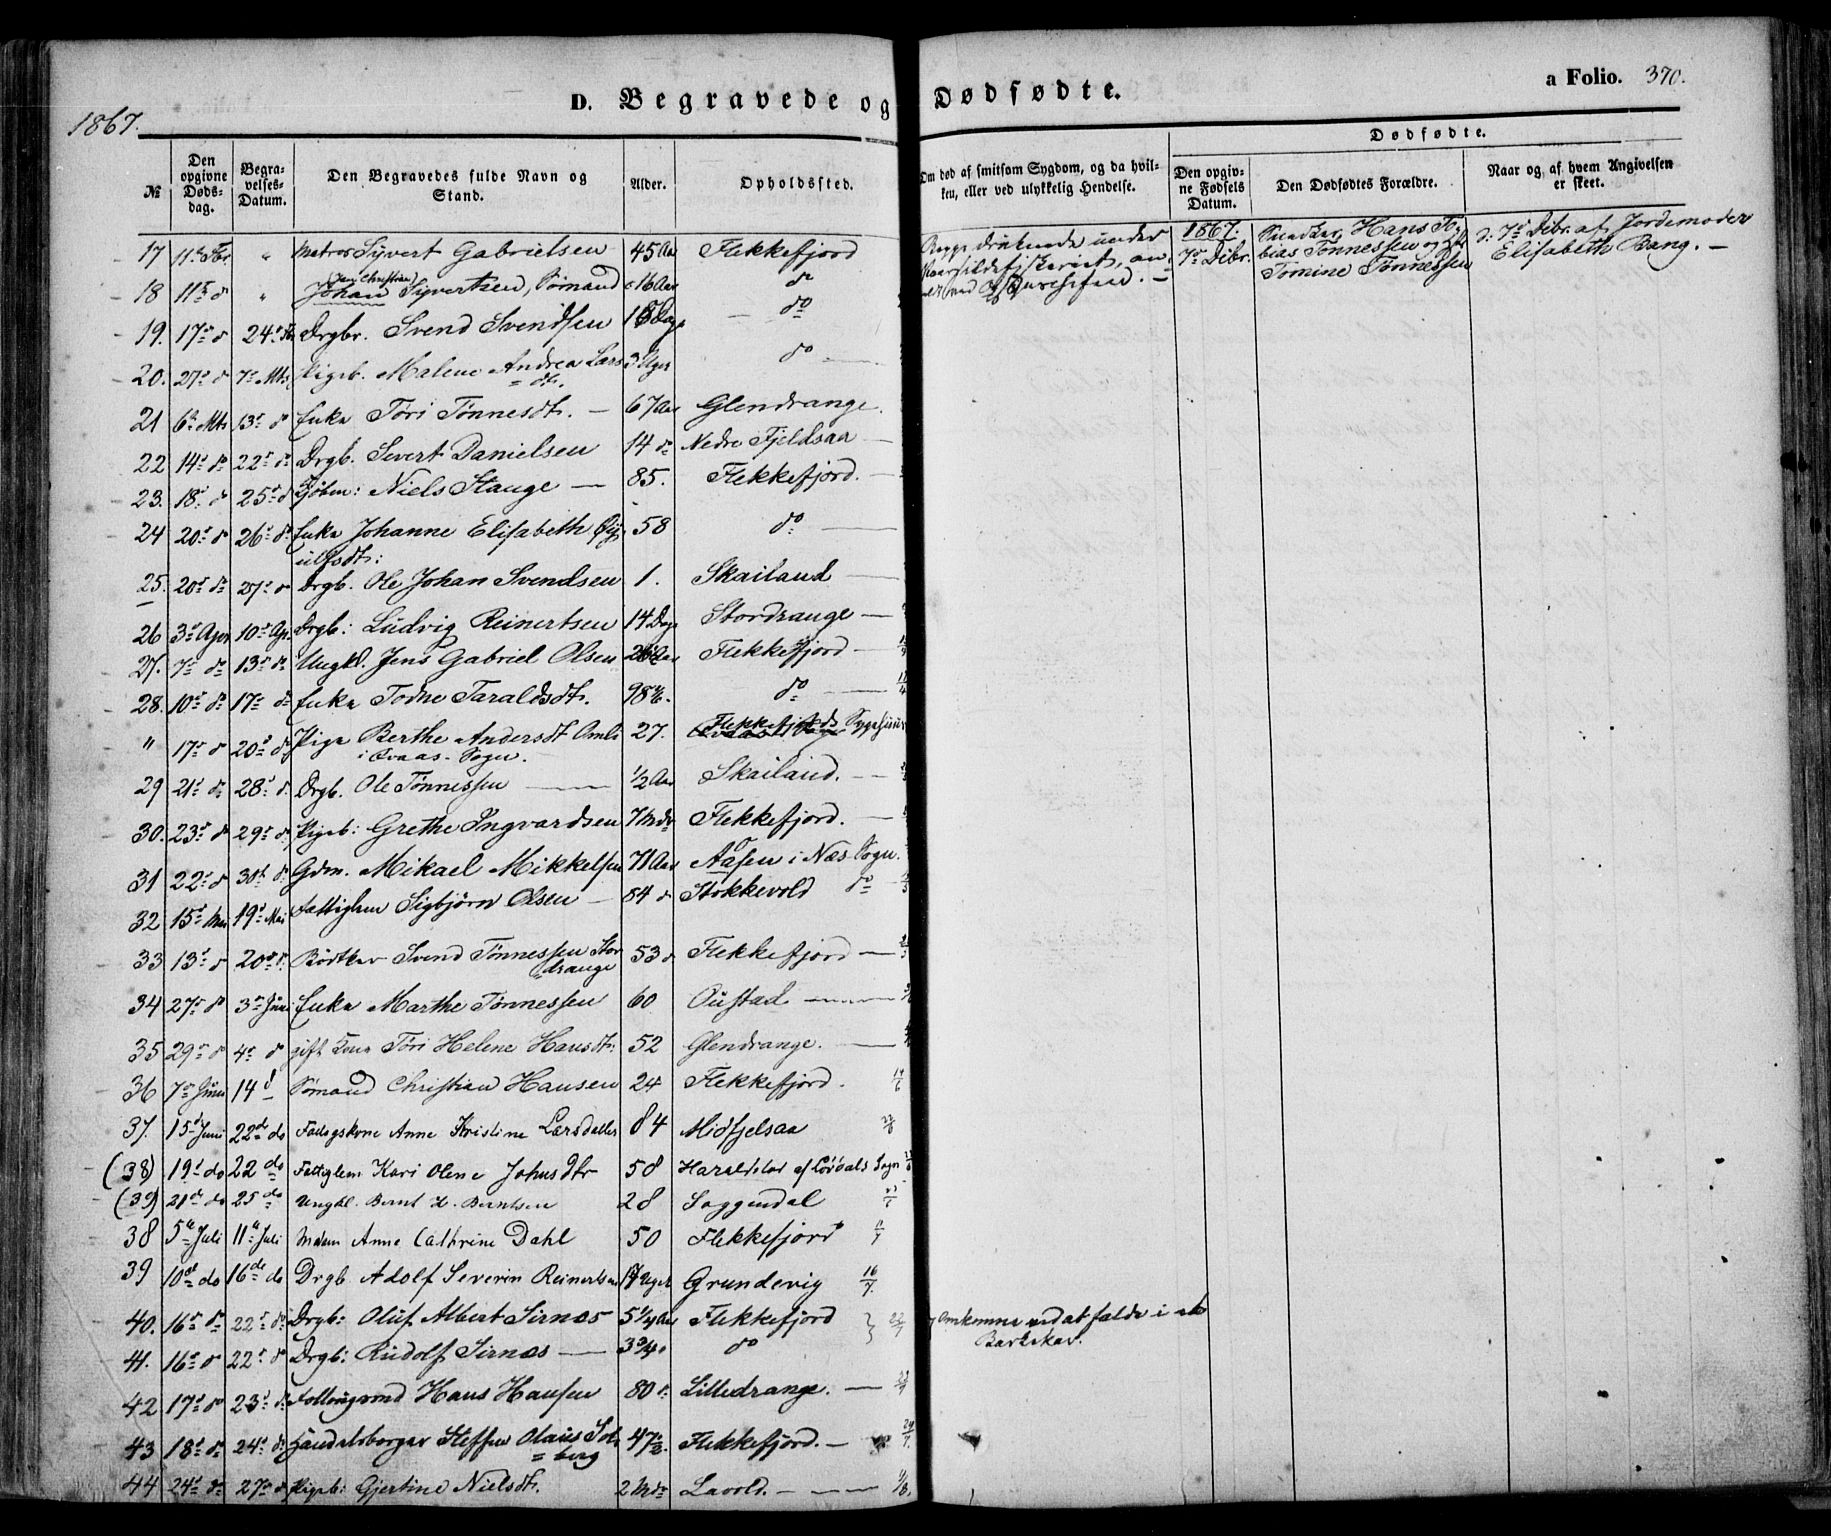 1867.
D. Begravede og Dødfødte.
a Folio. 370.
№
Den opgivne Døds-dag.
Begra-velses-Datum.
Den Begravedes fulde Navn og Stand.
Alder.
Opholdssted.
Om død af smitsom Sygdom, og da hvil-ken, eller ved ulykkelig Hendelse.
Dødfødte.
Den opgiv-ne Fødsels Datum.
Den Dødfødtes Forældre.
Naar og af hvem Angivelsen er skeet.
17 11te Fbr " Matros Syvert Gabrielsen 45 Aar Flekkefjord
Begge druknede under
Vaarsildefiskeriet,
1867.
7de Dcbr.
Snedker Hans To-
bias Tønnessen og
Tomine Tønnessen
d: 7de Dcbr. af Jordemoder
Elisabeth Bang. —
Jens Christian
18 11te do " Johan Syvertsen, Sømand 16 Aar do
19. 17de do 24de Fbr Drgbr. Svend Svendsen 18 Dage — do
20. 27de do 7de Mts Pigeb. Malene Andrea Lars
= dtr. 3 Uger do —
21 6te Mts 13de do Enke Tøri Tønnesdtr. — 67 Aar Glendrange.
22 14de do 22de do Drgb. Sivert Danielsen 14 do Nedre Fjeldsaa —
23. 18de do 25de do Kjøbm: Niels Stange — 85. Flekkefjord. —
24 20de do 26de do Enke Johanne Elisabeth Øy
ulfsdtr: 58 do —
25. 20de do 27de do Drgb. Ole Johan Svendsen 1. Skailand —
26 3de Apr 10de Apr. Drgb: Ludvig Reinertsen 14 Dage Stordrange —
27. 7de do 13de do Ungkl. Jens Gabriel Olsen 26 Aar Flekkefjord —
28. 10de do 17de do Enke Todne Taraldsdtr. 98 do —
" 17de do 20de do Pige Berthe Andersdtr Omli
i Qvaas-Sogn. 27. Flekkefjords Sygehuus
29 21de do 28de do Drgb. Ole Tønnessen — 1/2 Aar Skailand. —
30. 23de do 29de do Pigeb: Grethe Ingvardsen 7 Mdr Flekkefjord. —
31 22de do 30te do Gdm. Mikael Mikkelsen 71 Aar Aasen i Næs Sogn.
32 15de Mai 19de Mai Fattiglem Sigbjørn Olsen — 84 do Stokkevold do
33 13de do 20de do Bødker Svend Tønnessen Stor
drange 53 do Flekkefjord —
34 27de do 3de Juni Enke Marthe Tønnessen 60 Oustad —
35 29de do 4de do gift Kone Tøri Helene Hansdtr: 52 Glendrange. —
36 7de Juni 14 d Sømand Christian Hansen 24 Flekkefjord. 14/6
37. 15d Juni 22de do Føderkone Anne Kristine Larsdatter 84 Midfjelsaa
(38) 19d do 22 do Fattiglem Kari Olene Johnsdtr 58 Haraldstad af Sogn
(39) 21de do 25de Ungkl. Bernt H. Berntsen 28 Soggendal
38 5te Juli 11te Juli Madam Anne Cathrine Dahl 50 Flekkefjord
39 10de do 16de do Drgb. Adolf Severin Reinertsen 17 Uger Grundevig 16/7.
40. 16de do 22de do Drgb: Oluf Albert Sirnæs 5 1/4 Aar Flekkefjord 22/7
Omkomne ved at falde i et
Barkekar.
41. 16de do 22de do Drgb: Rudolf Sirnæs — 3 3/4 do
42 17de do 23de do Follougsmd Hans Hansen 80 d. Lilledrange. — 23/7
43 18de do 24de do Handelsborger Steffen Olaus Sol
= berg 47 1/2. Flekkefjord. — 24/7.
44 24de do 27de do Pigeb: Gjertine Nielsdtr. 2 Mdr Lavold. —